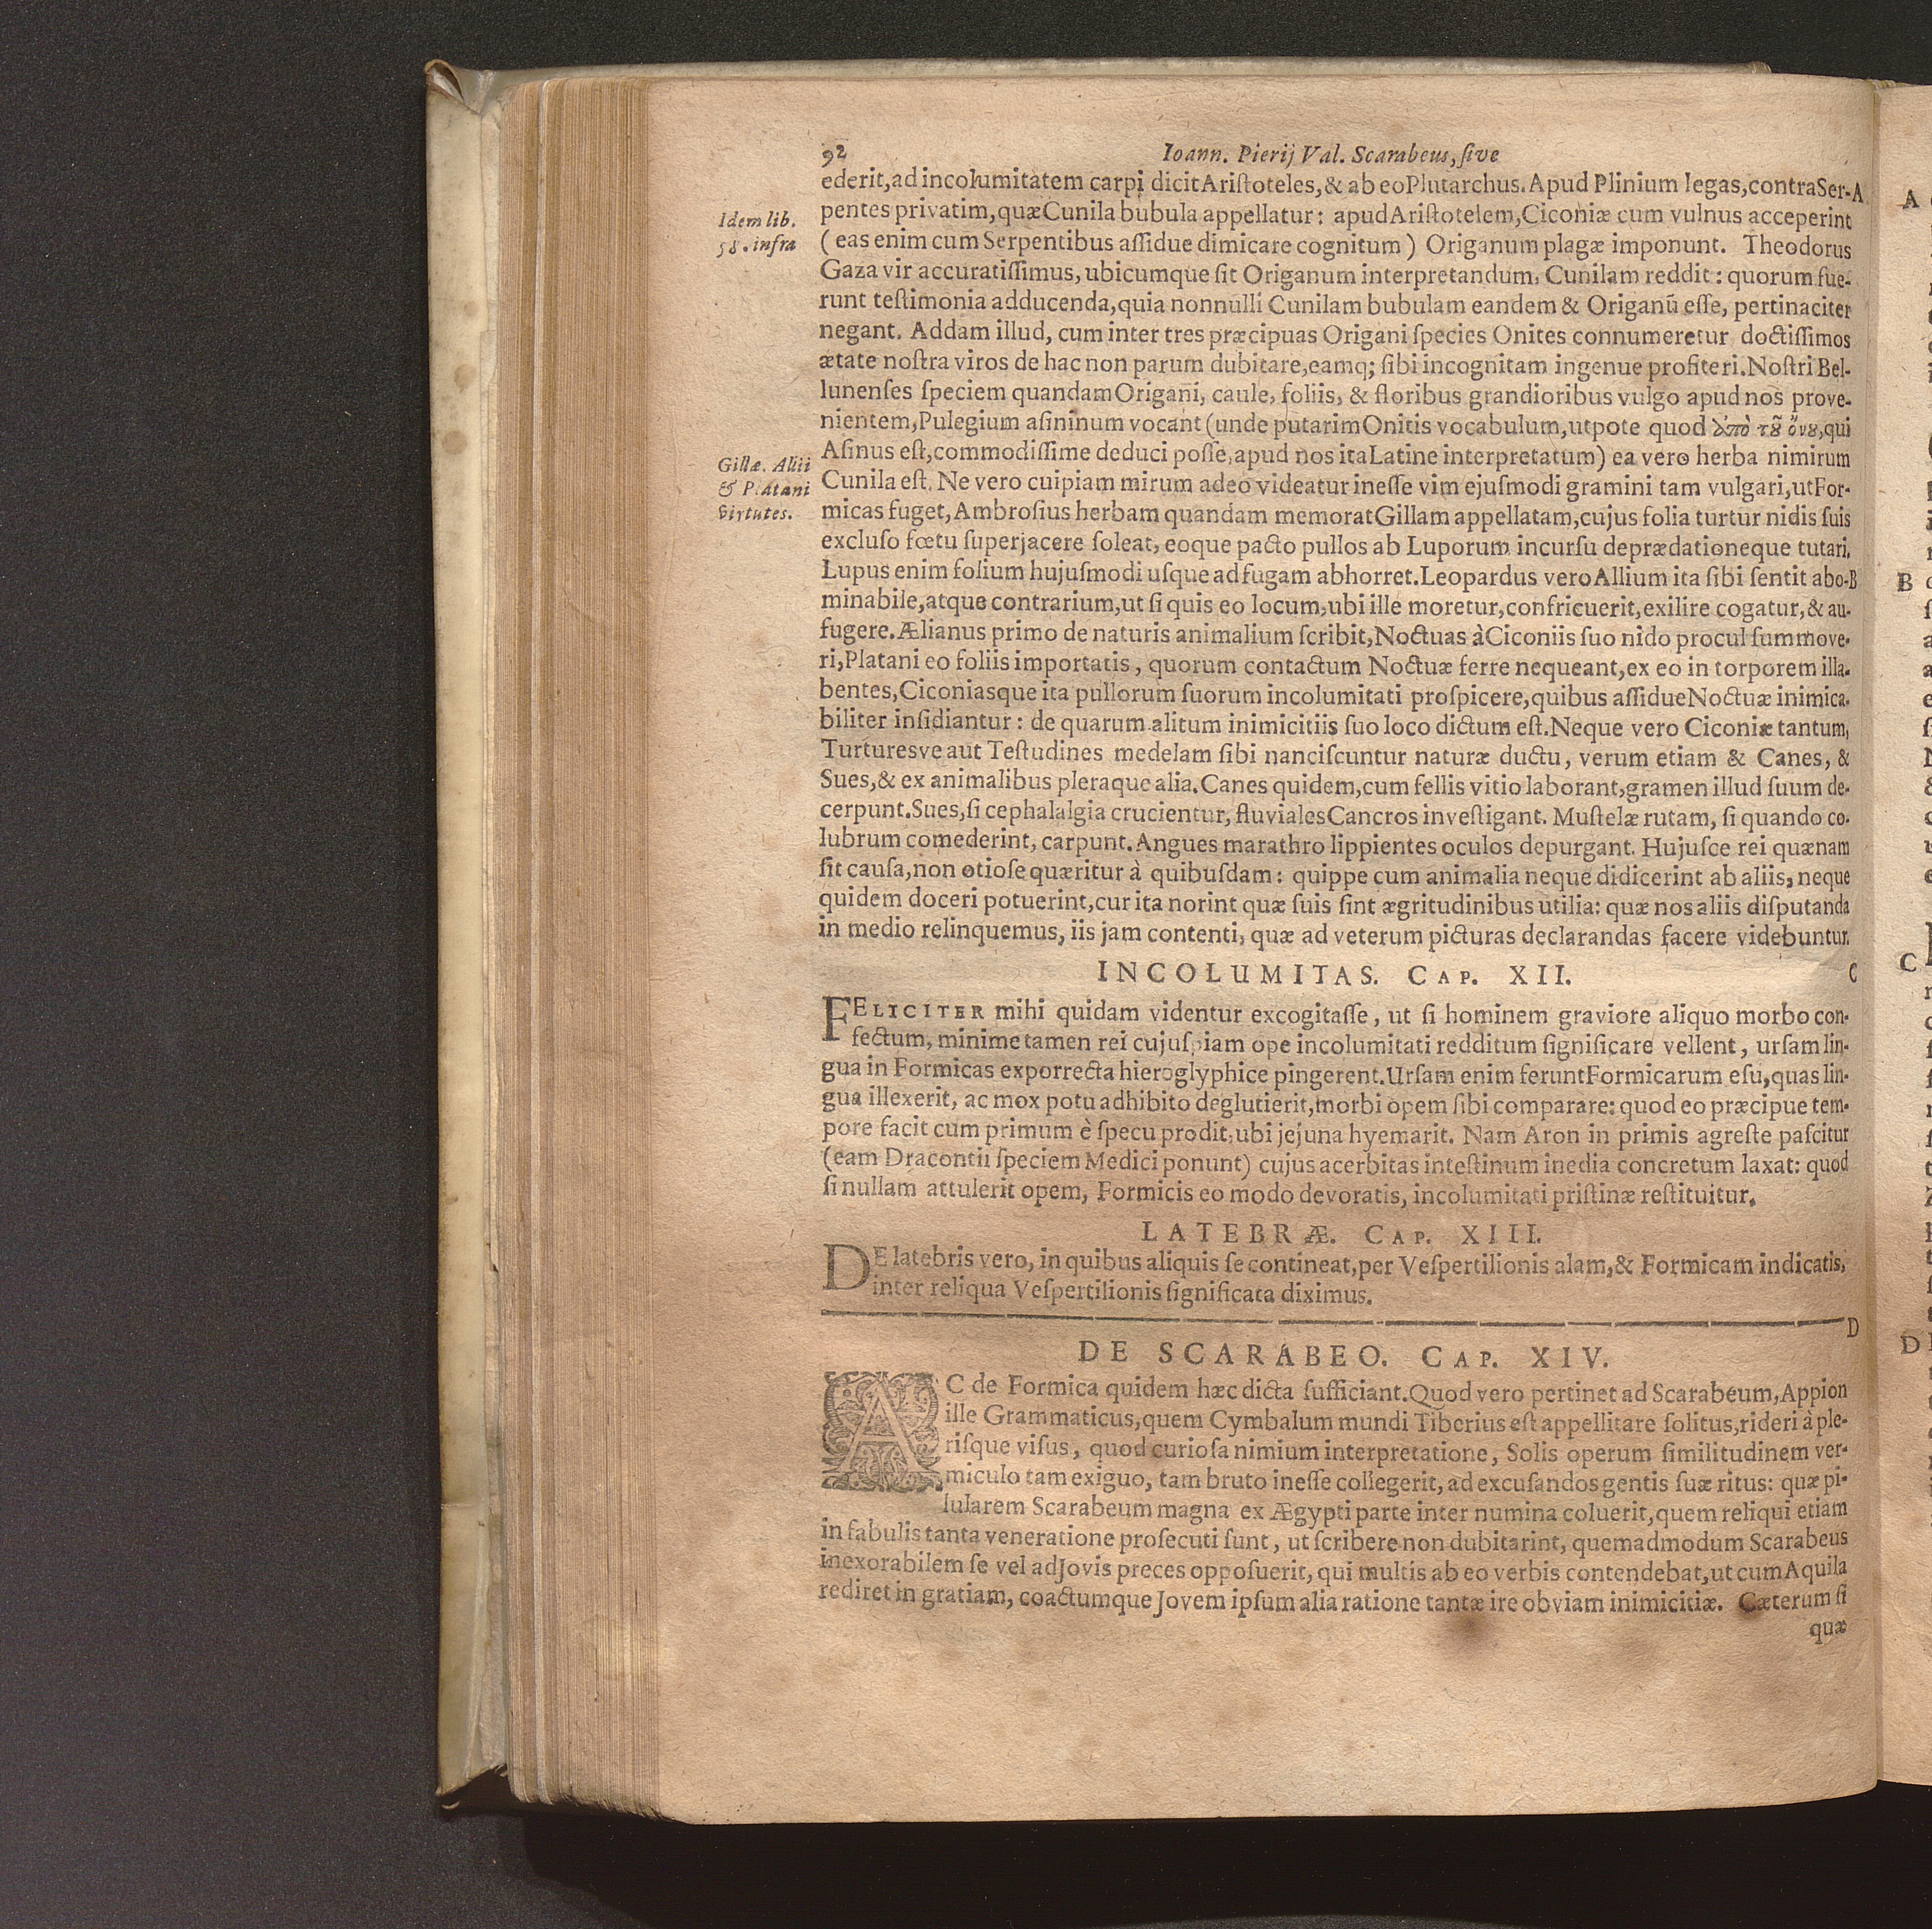 92 Ioann. Pierij Val. Scarabeus, ſive
ederit, ad incolumitatem carpi dicit Ariſtoteles, & ab eo Plutarchus. Apud Plinium legas, contra Ser- A
Idem lib. 58. infra
pentes privatim, quæ Cunila bubula appellatur: apud Ariſtotelem, Ciconiæ cum vulnus acceperint
(eas enim cum Serpentibus aſſidue dimicare cognitum) Origanum plagæ imponunt. Theodorus
Gaza vir accuratiſſimus, ubicumque ſit Origanum interpretandum, Cunilam reddit: quorum fue-
runt teſtimonia adducenda, quia nonnulli Cunilam bubulam eandem & Origanū eſſe, pertinaciter
negant. Addam illud, cum inter tres præcipuas Origani ſpecies Onites connumeretur doctiſſimos
ætate noſtra viros de hac non parum dubitare, eamq; ſibi incognitam ingenue profiteri. Noſtri Bel-
lunenſes ſpeciem quandam Origani, caule, foliis, & floribus grandioribus vulgo apud nos prove-
nientem, Pulegium aſininum vocant (unde putarim Onitis vocabulum, utpote quod ἀπὸ τȣ͂ ὄνȣ, qui
Gillæ. Alii & Platani virtutes.
Aſinus eſt, commodiſſime deduci poſſe, apud nos ita Latine interpretatum) ea vero herba nimirum
Cunila eſt. Ne vero cuipiam mirum adeo videatur ineſſe vim ejuſmodi gramini tam vulgari, ut For-
micas fuget, Ambroſius herbam quandam memorat Gillam appellatam, cujus folia turtur nidis ſuis
excluſo fœtu ſuperjacere ſoleat, eoque pacto pullos ab Luporum incurſu deprædationeque tutari.
Lupus enim folium hujuſmodi uſque ad fugam abhorret. Leopardus vero Allium ita ſibi ſentit abo- B
minabile, atque contrarium, ut ſi quis eo locum, ubi ille moretur, confricuerit, exilire cogatur, & au-
fugere. Ælianus primo de naturis animalium ſcribit, Noctuas à Ciconiis ſuo nido procul ſummove-
ri, Platani eo foliis importatis, quorum contactum Noctuæ ferre nequeant, ex eo in torporem illa-
bentes, Ciconiasque ita pullorum ſuorum incolumitati proſpicere, quibus aſſidue Noctuæ inimica-
biliter inſidiantur: de quarum alitum inimicitiis ſuo loco dictum eſt. Neque vero Ciconiæ tantum,
Turturesve aut Teſtudines medelam ſibi nanciſcuntur naturæ ductu, verum etiam & Canes, &
Sues, & ex animalibus pleraque alia. Canes quidem, cum fellis vitio laborant, gramen illud ſuum de-
cerpunt. Sues, ſi cephalalgia crucientur, fluviales Cancros inveſtigant. Muſtelæ rutam, ſi quando co-
lubrum comederint, carpunt. Angues marathro lippientes oculos depurgant. Hujuſce rei quænam
ſit cauſa, non otioſe quæritur à quibuſdam: quippe cum animalia neque didicerint ab aliis, neque
quidem doceri potuerint, cur ita norint quæ ſuis ſint ægritudinibus utilia: quæ nos aliis diſputanda
in medio relinquemus, iis jam contenti, quæ ad veterum picturas declarandas facere videbuntur.
INCOLUMITAS. CAP. XII. C
FELICITER mihi quidam videntur excogitaſſe, ut ſi hominem graviore aliquo morbo con-
fectum, minime tamen rei cujuſpiam ope incolumitati redditum ſignificare vellent, urſam lin-
gua in Formicas exporrecta hieroglyphice pingerent. Urſam enim ferunt Formicarum eſu, quas lin-
gua illexerit, ac mox potu adhibito deglutierit, morbi opem ſibi comparare: quod eo præcipue tem-
pore facit cum primum è ſpecu prodit, ubi jejuna hyemarit. Nam Aron in primis agreſte paſcitur
(eam Dracontii ſpeciem Medici ponunt) cujus acerbitas inteſtinum inedia concretum laxat: quod
ſi nullam attulerit opem, Formicis eo modo devoratis, incolumitati priſtinæ reſtituitur.
LATEBRÆ. CAP. XIII.
DE latebris vero, in quibus aliquis ſe contineat, per Veſpertilionis alam, & Formicam indicatis,
inter reliqua Veſpertilionis ſignificata diximus.
D
DE SCARABEO. CAP. XIV.
AC de Formica quidem hæc dicta ſufficiant. Quod vero pertinet ad Scarabeum, Appion
ille Grammaticus, quem Cymbalum mundi Tiberius eſt appellitare ſolitus, rideri à ple-
riſque viſus, quod curioſa nimium interpretatione, Solis operum ſimilitudinem ver-
miculo tam exiguo, tam bruto ineſſe collegerit, ad excuſandos gentis ſuæ ritus: quæ pi-
lularem Scarabeum magna ex Ægypti parte inter numina coluerit, quem reliqui etiam
in fabulis tanta veneratione proſecuti ſunt, ut ſcribere non dubitarint, quemadmodum Scarabeus
inexorabilem ſe vel ad Jovis preces oppoſuerit, qui multis ab eo verbis contendebat, ut cum Aquila
rediret in gratiam, coactumque Jovem ipſum alia ratione tantæ ire obviam inimicitiæ. Cæterum ſi
quæ
A
B
C
D